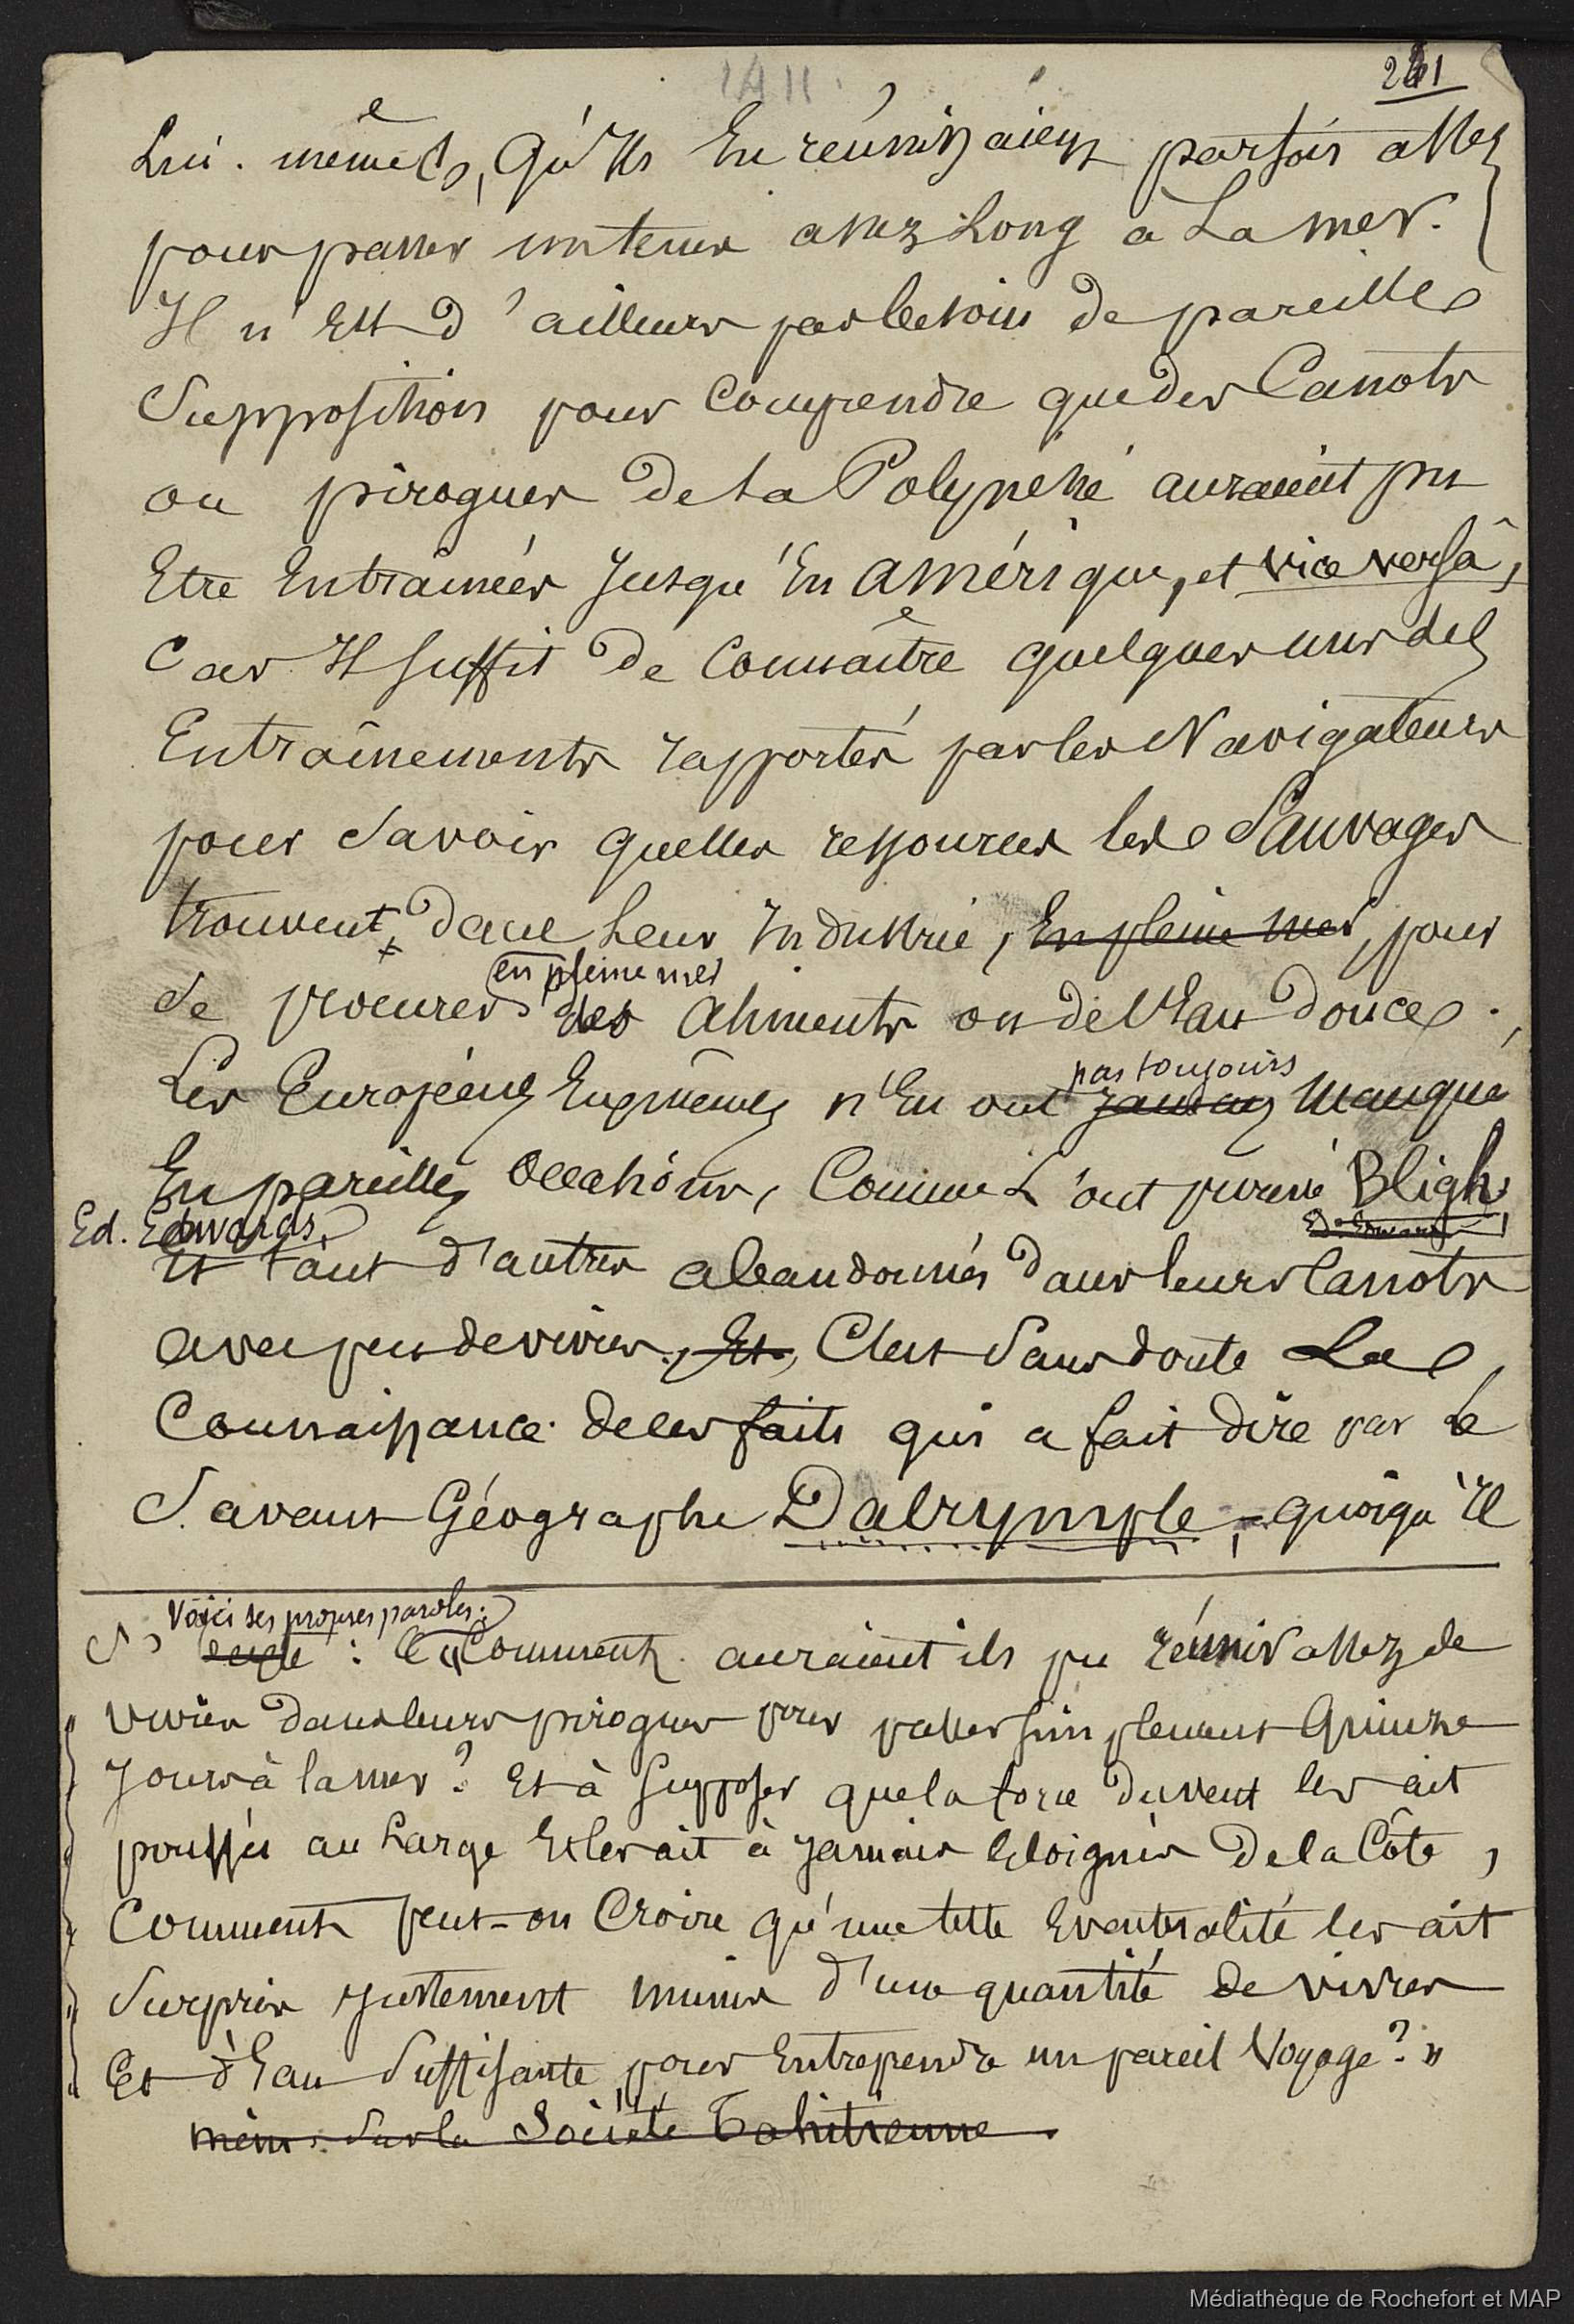 241
Lui-même, qu'Ils En réunissaient parfois assez
pour passer un temps assez Long à La mer.
Il n'Est d'ailleurs pas besoin de pareilles
Supposition pour Comprendre que des Canots
ou pirogues de la Polynésie auraient pu
Etre Entrainées Jusqu'En amérique, et vice versâ,
Car Il suffit de Connaître quelques uns des
Entraînements rapportés par les Navigateurs
pour Savoir quelles ressources les Sauvages
trouvent, dans Leur Industrie, En pleine mer, pour
en pleine mer
se procurer des aliments ou de l'Eau douce.
pas toujours
Les Européens Euxmêmes n'En ont jamais manqué
En pareilles Occasions, Comme L'ont prouvé Bligh,
Ed. Edwards, Ed. Edwards
Et tant d'autres abandonnés dans leurs Canots
avec peu de vivres. Et, C'est Sans doute La
Connaissance de ces faits qui a fait dire par Le
Savant Géographe Dalrymple, quoiqu'Il
Voici ses propres paroles:
"Comment auraient ils pu réunir assez de
vivres dans leurs pirogues pour passer simplement Quinze
Jours à la mer? Et à Supposer que la force du vent les ait
poussés au Large Et les ait à Jamais Eloignés de la Côte,
Comment peut-on Croire qu'une telle Eventualité les ait
Surpris justement munis d'une quantité de vivres
Et d'Eau Suffisante, pour Entreprendre un pareil Voyage?"
mém. Sur la Société Tahitienne.
Médiathèque de Rochefort et MAP